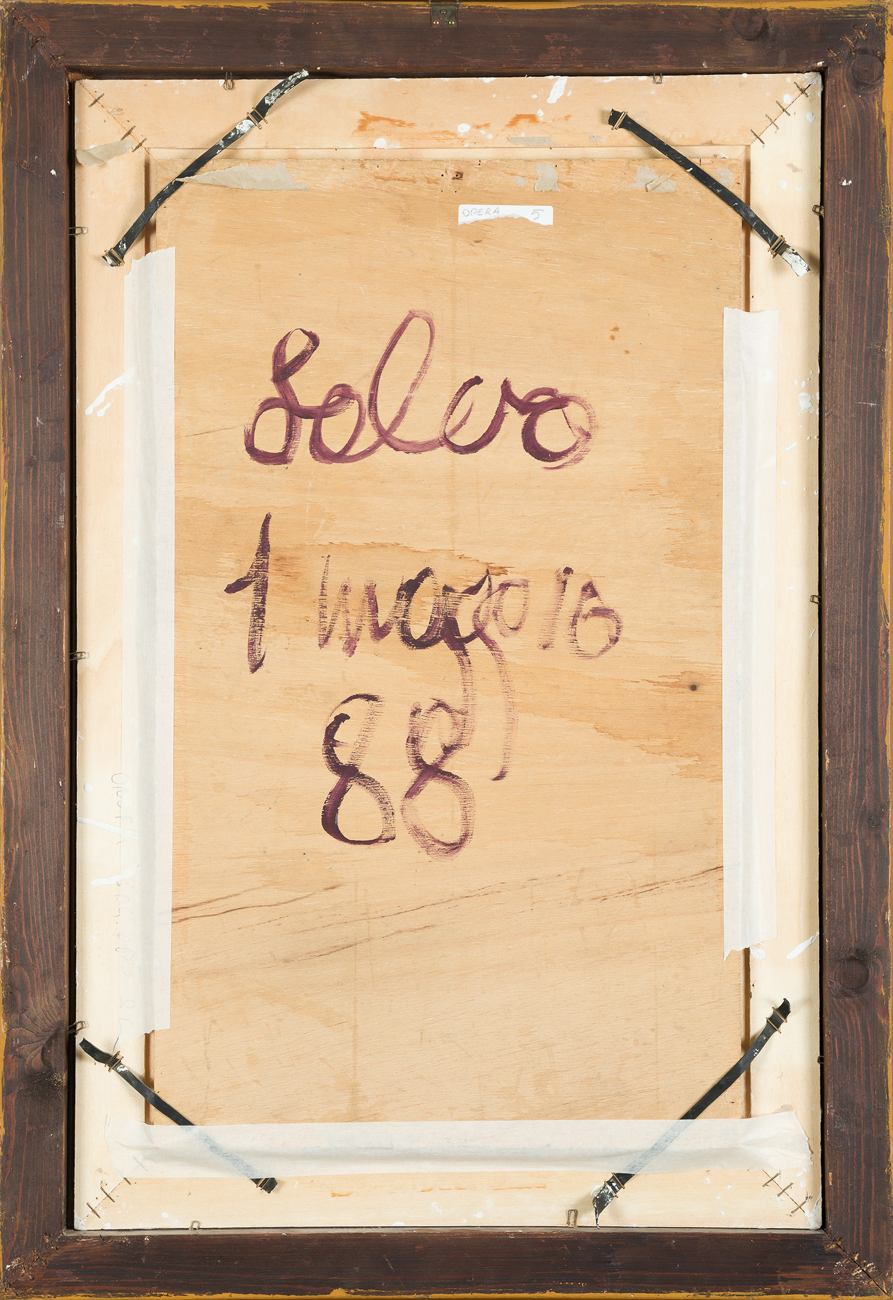 OPERA 5
Salvo
1 maggio
88